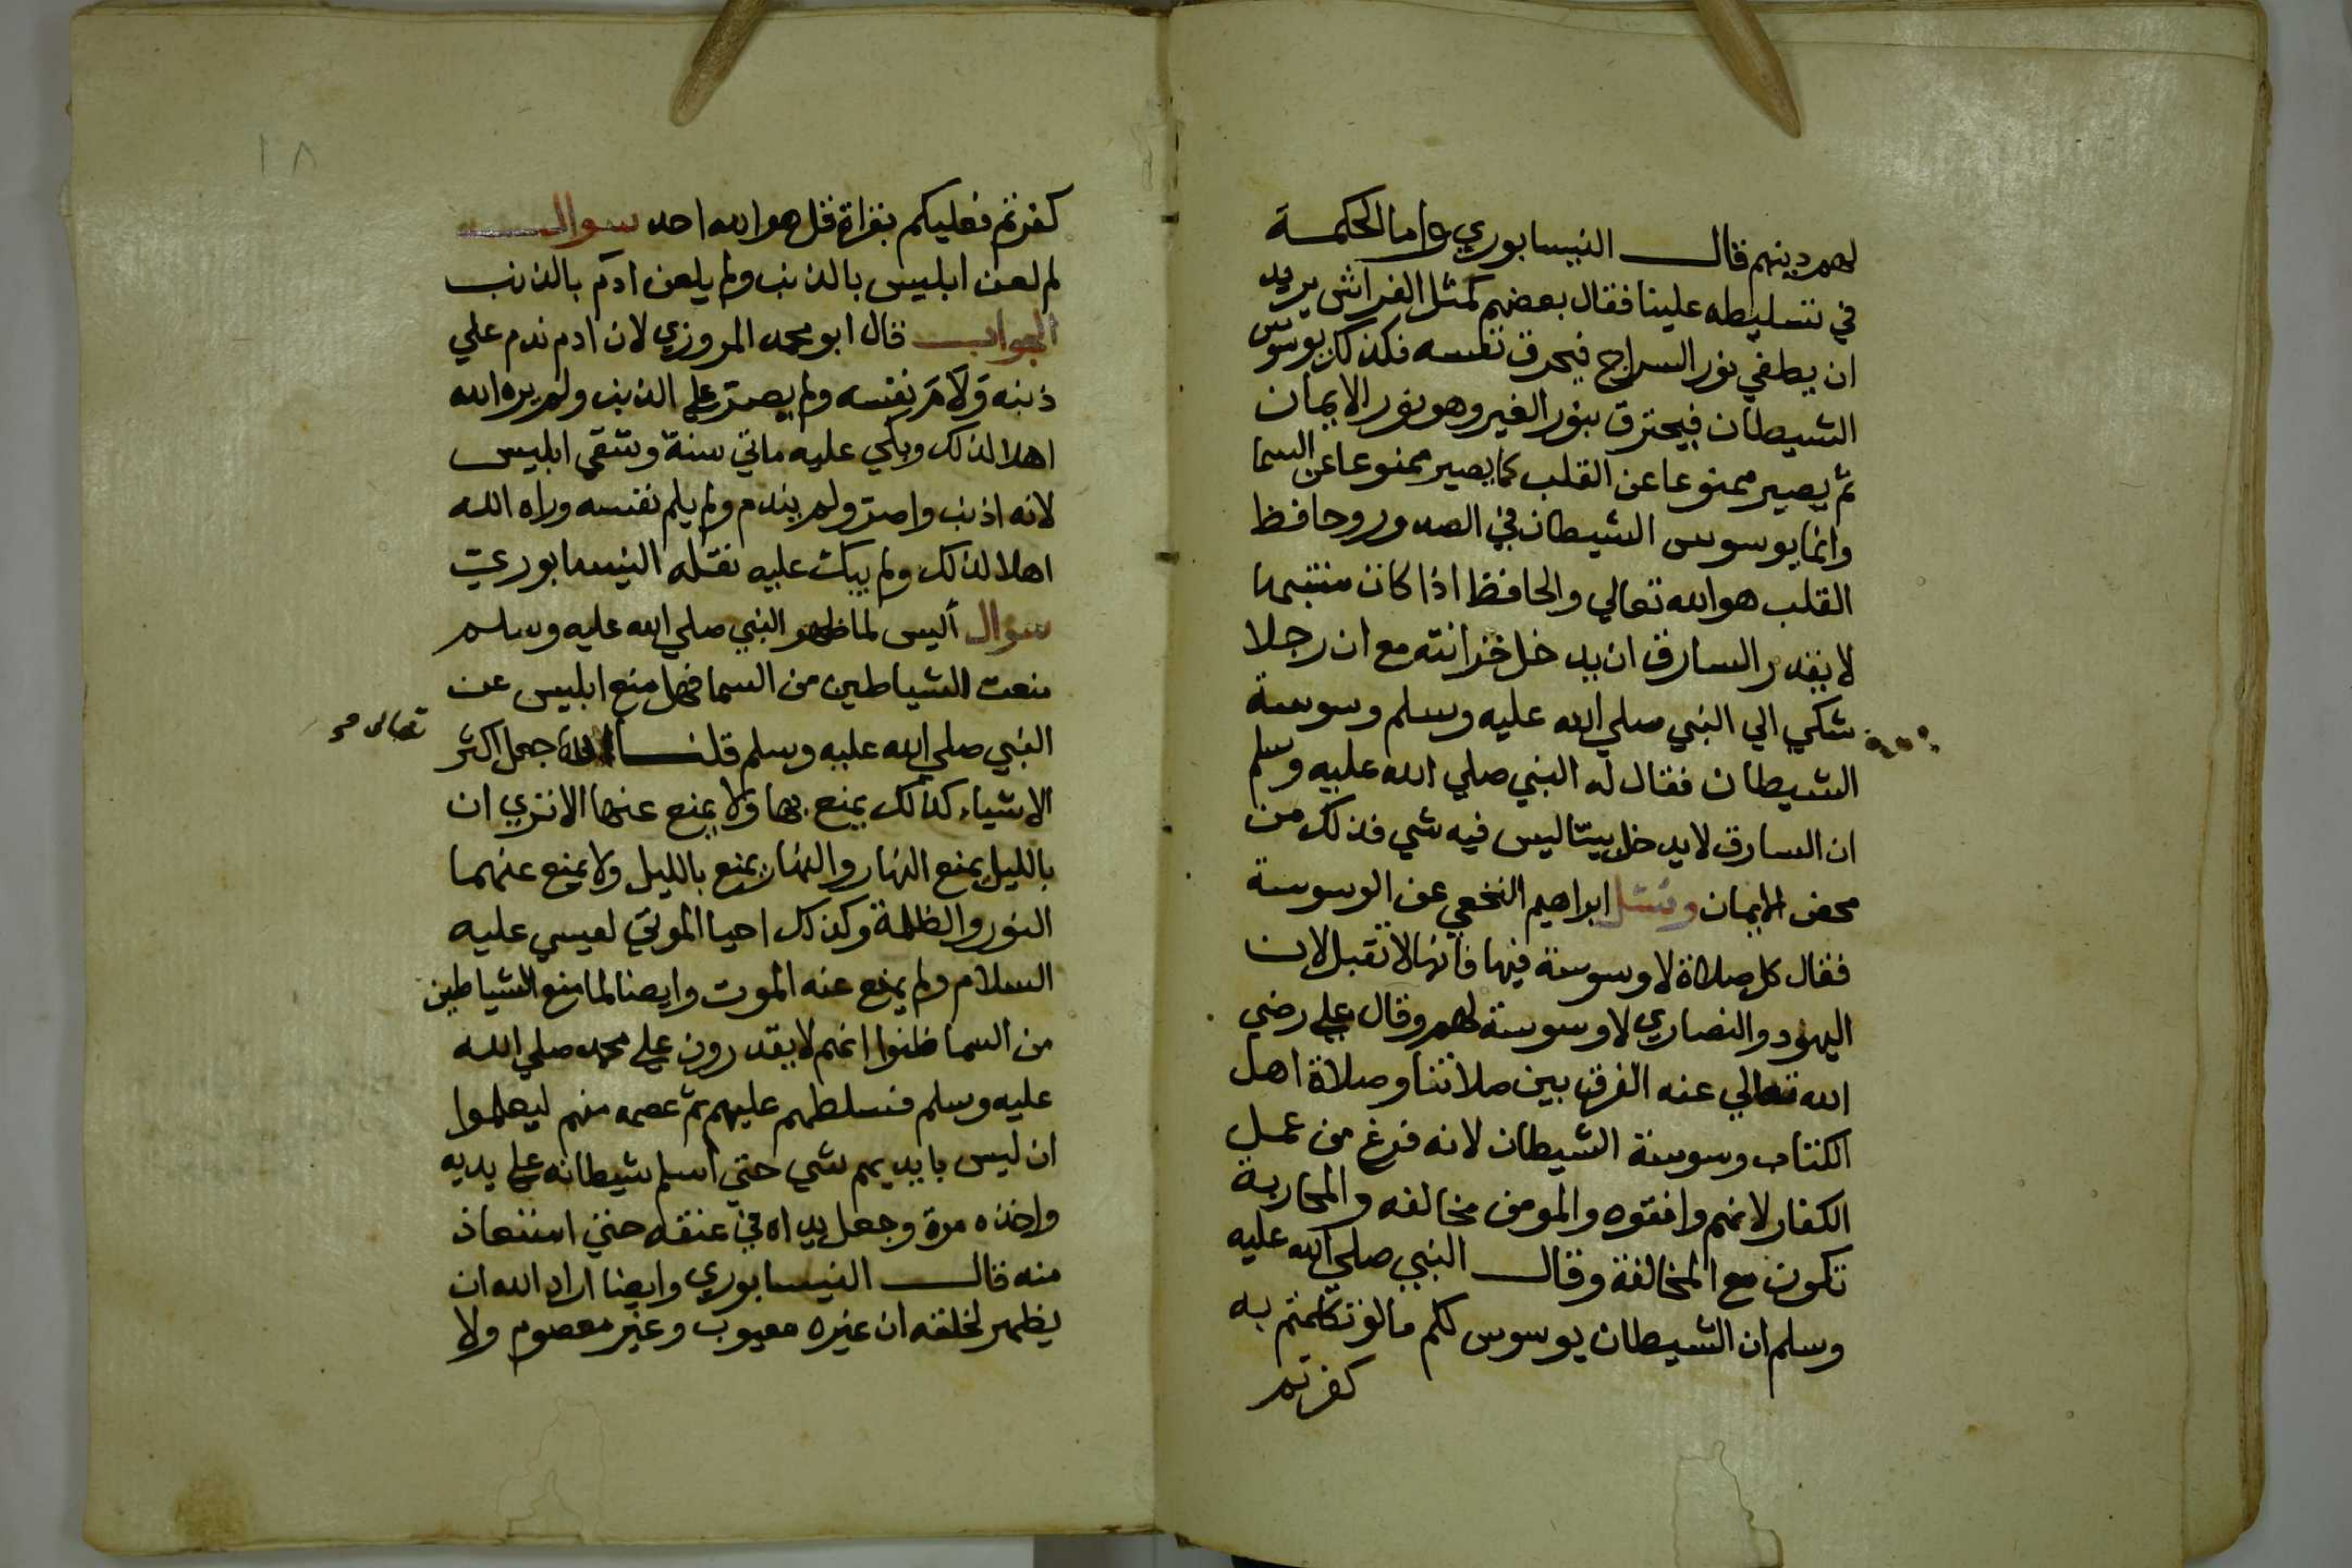 لهم دينهم قال النيسابوري واما الحكمة
في تسليطه علينا فقال بعضهم كمثل الفراش يريد
ان يطفي نور السراج فيحرق نفسه فكذلك يوسوس
الشيطان فيحترق بنور الغير وهو نور الايمان
ثم يصير ممنوعا عن القلب كما يصير ممنوعا عن السما
وانما يوسوس الشيطان في الصدور وحافظ
القلب هو الله تعالي والحافظ اذا كان منتبها
لا يقدر السارق ان يدخل خزانته مع ان رجلا
شكي الي النبي صلي الله عليه وسلم وسوسة
الشيطان فقال له النبي صلي الله عليه وسلم
ان السارق لا يدخل بيتا ليس فيه شي فذلك من
محض الايمان وسئل ابراهيم النخعي عن الوسوسة
فقال كل صلاة لا وسوسة فيها فانها لا تقبل لان
اليهود والنصاري لا وسوسة لهم وقال علي رضي
الله تعالي عنه الفرق بين صلاتنا وصلاة اهل
الكتاب وسوسة الشيطان لانه فرغ من عمل
الكفار لانهم وافقوه والمومن مخالفه والمحاربة
تكون مع المخالفة وقال النبي صلي الله عليه
وسلم ان الشيطان يوسوس لكم مالو تكلمتم به
كفرتم
١٨
كفرتم فعليكم بقراة قل هو الله احد سوال
لم لعن ابليس بالذنب ولم يلعن ادم بالذنب
الجواب قال ابو محمد المروزي لان ادم ندم علي
ذنبه ولام نفسه ولم يصر علي الذنب ولم يره الله
اهلا لذلك وبكي عليه ماتي سنة وشقي ابليس
لانه اذنب واصر ولم يندم ولم يلم نفسه وراه الله
اهلا لذلك ولم يبك عليه نقله النيسابوري
سوال أليس لما ظهر النبي صلي الله عليه وسلم
منعت الشياطين من السما فهل منع ابليس عن
النبي صلي الله عليه وسلم قلنا الله جعل اكثر
تعالى صح
الاشياء كذلك يمنع بها ولا يمنع عنها الا تري ان
بالليل يمنع النهار والنهار يمنع بالليل ولا يمنع عنهما
النور والظلمة وكذلك احيا الموتي لعيسي عليه
السلام ولم يمنع عنه الموت وايضا لما منع الشياطين
من السما ظنوا انهم لا يقدرون علي محمد صلي الله
عليه وسلم فسلطهم عليهم ثم عصمه منهم ليعلموا
ان ليس بايديهم شي حتي اسلم شيطانه علي يديه
واخذه مرة وجعل يداه في عنقه حتي استعاذ
منه قال النيسابوري وايضا اراد الله ان
يظهر لخلقه ان غيره معيوب وغير معصوم ولا